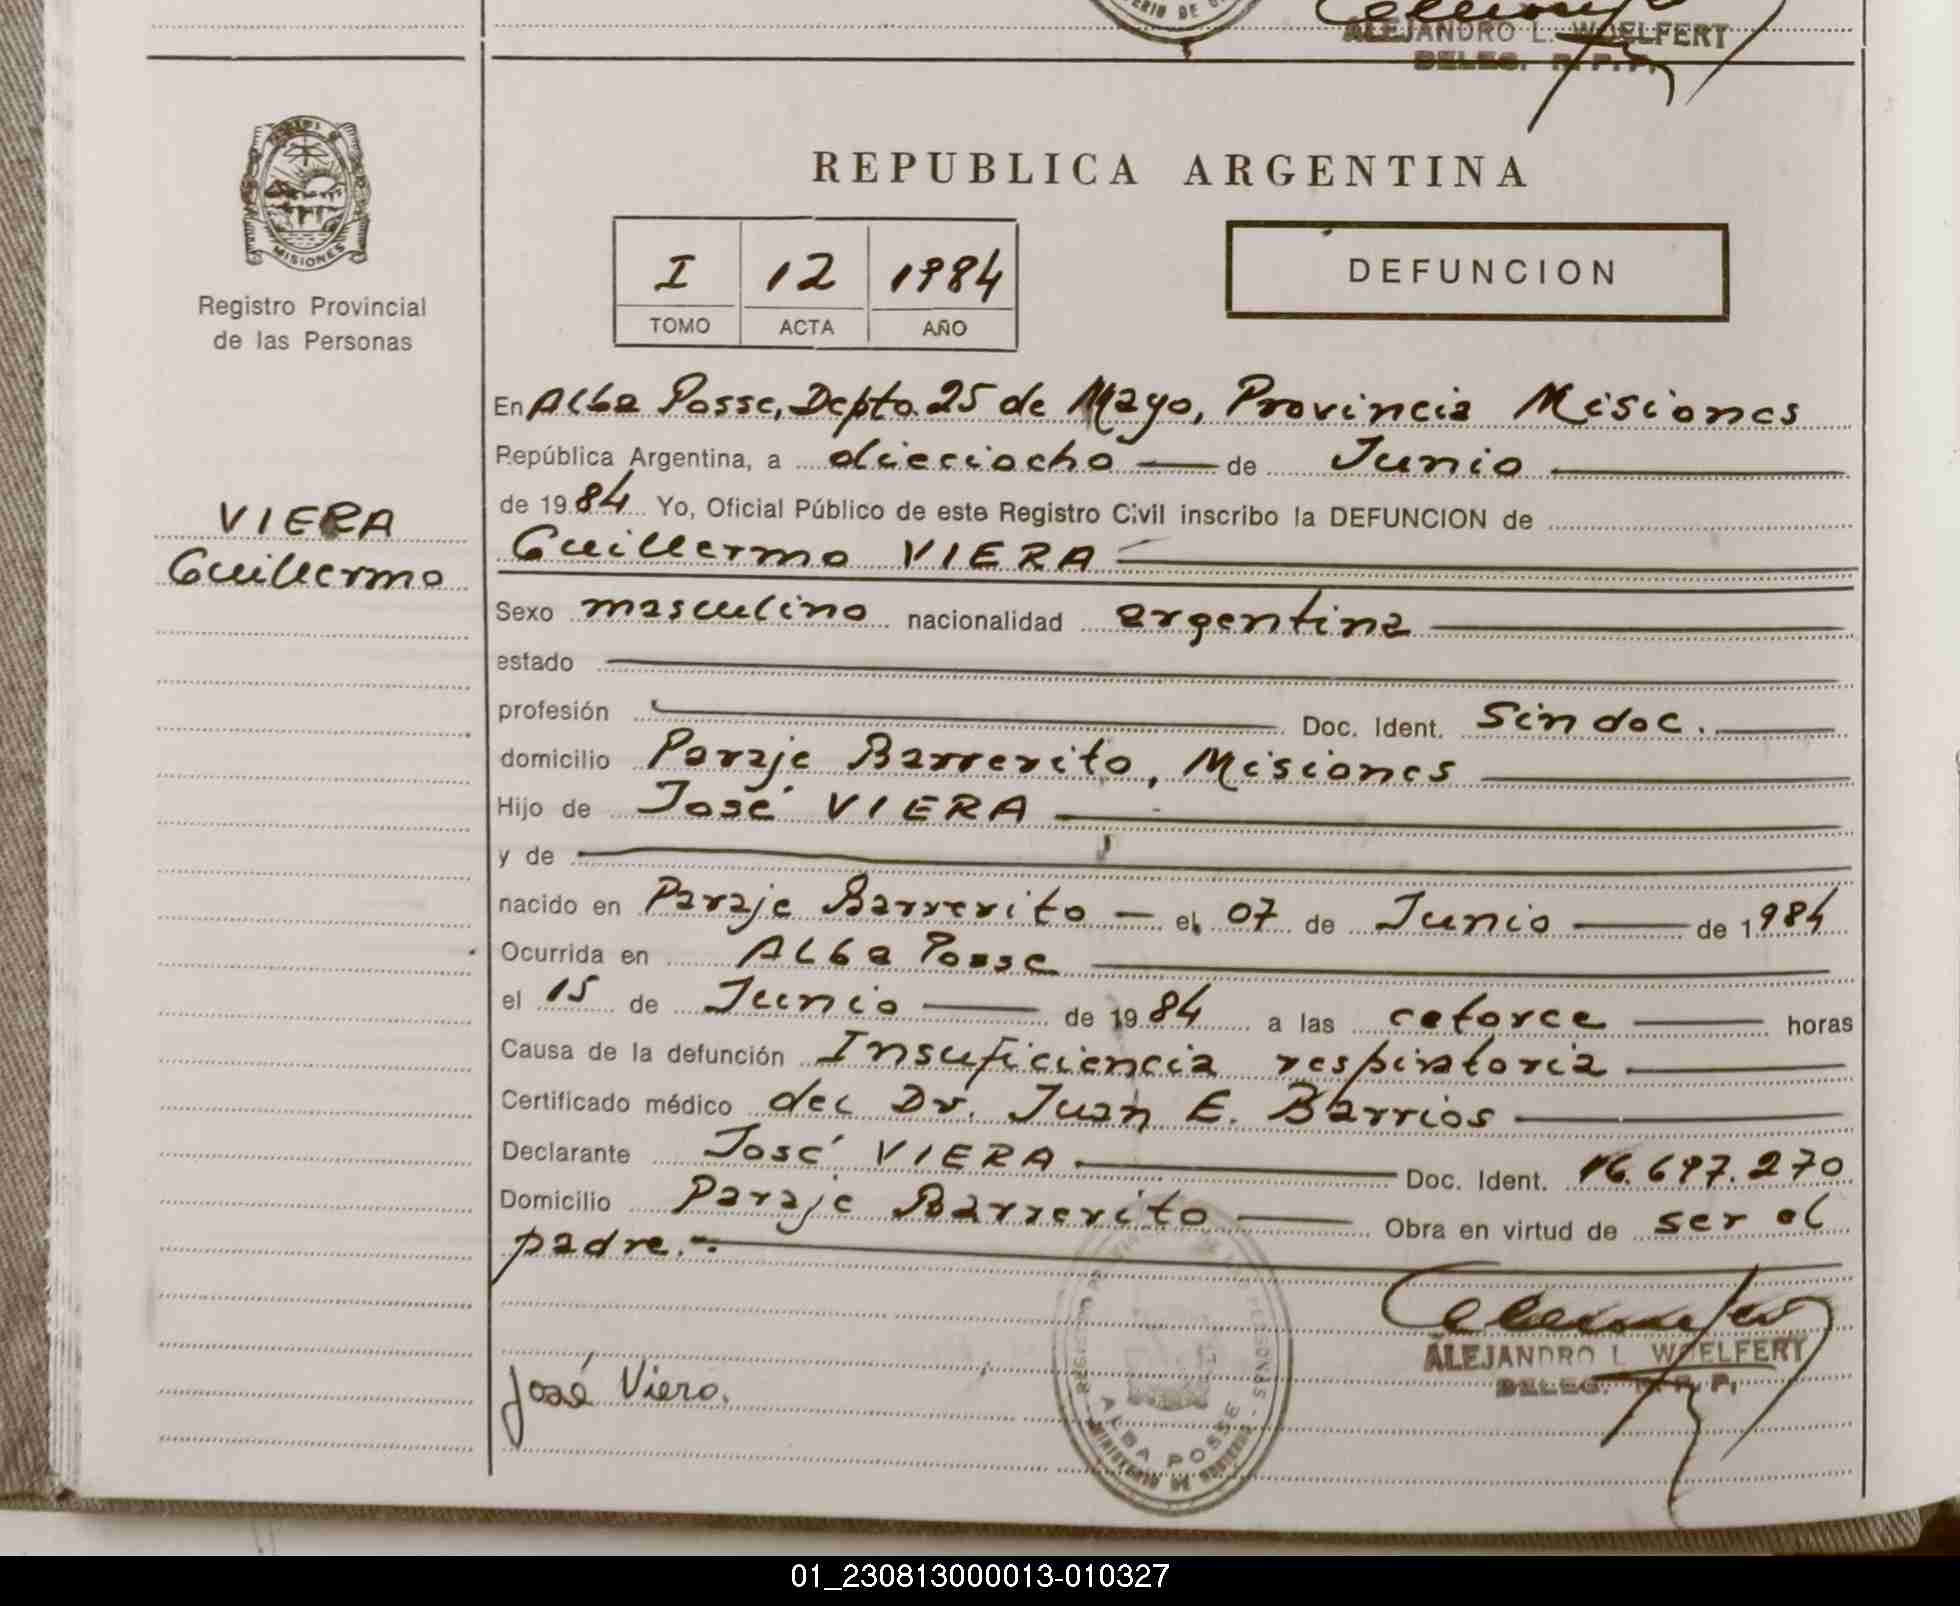 ALEJANDRO L. WOELFERT
DELEG. R. P. P.
MISIONES
Registro Provincial
de las Personas
VIERA
Guillermo
REPUBLICA ARGENTINA
I 12 1984
TOMO ACTA AÑO
DEFUNCION
En Alba Posse, Depto. 25 de Mayo, Provincia Misiones
República Argentina, a dieciocho de Junio
de 1984 Yo, Oficial Público de este Registro Civil inscribo la DEFUNCION de
Guillermo VIERA
Sexo masculino nacionalidad argentina
estado
profesión Doc. Ident. Sin doc.
domicilio Paraje Barrerito, Misiones
Hijo de José VIERA
y de
nacido en Paraje Barrerito el 07 de Junio de 1984
Ocurrida en Alba Posse
el 15 de Junio de 1984 a las catorce horas
Causa de la defunción Insuficiencia respiratoria
Certificado médico del Dr. Juan E. Barrios
Declarante José VIERA Doc. Ident. 16.697.270
Domicilio Paraje Barrerito Obra en virtud de ser el
padre.
ALEJANDRO L. WOELFERT
DELEG. R. P. P.
José Viero.
ALBA POSSE
01_230813000013-010327